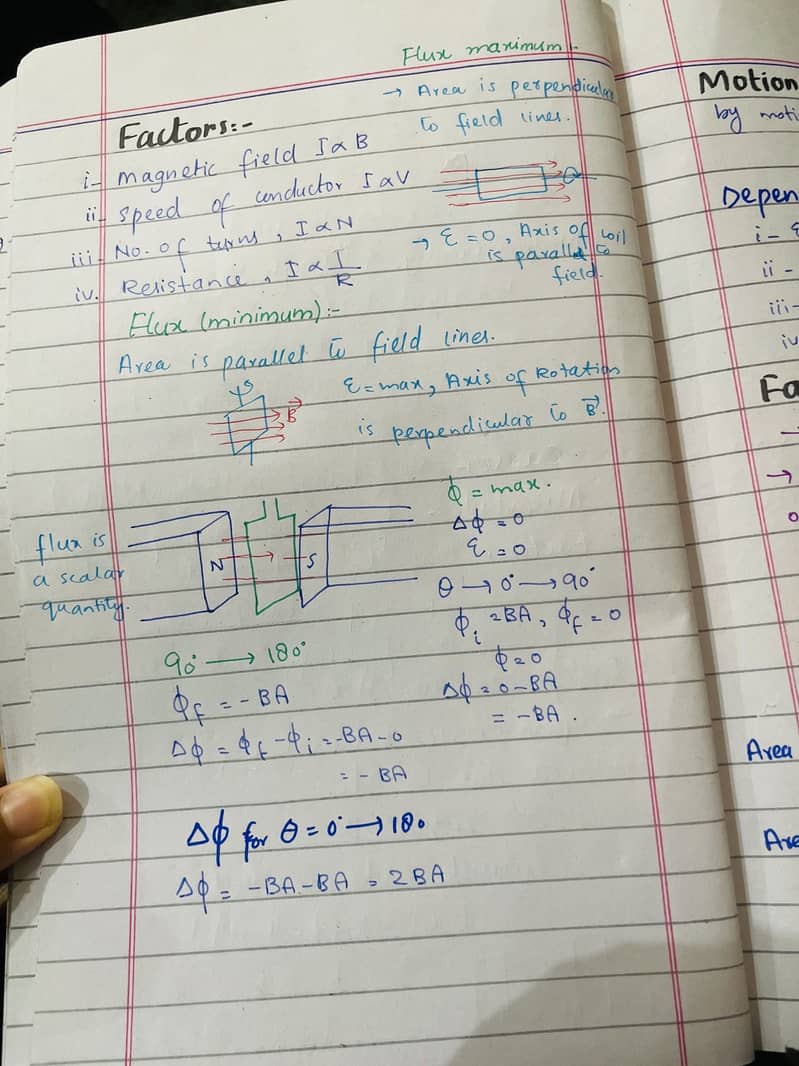 Flux maximum:-
→ Area is perpendicular
to field lines.
Factors:-
i- magnetic field I∝B
ii- speed of conductor I∝V
iii- No. of turns, I∝N
iv. Resistance, I∝ I/R
→ ε = 0, Axis of coil
is parallel to
field.
Flux (minimum):-
Area is parallel to field lines.
ε = max, Axis of Rotation
is perpendicular to B⃗.
B⃗
flux is
a scalar
quantity.
N
S
ϕ = max.
Δϕ = 0
ε = 0
θ → 0° → 90°
ϕi = BA, ϕf = 0
ϕ = 0
Δϕ = 0 - BA
= -BA.
90° → 180°
ϕf = - BA
Δϕ = ϕf - ϕi = -BA - 0
= - BA
Δϕ for θ = 0° → 180
Δϕ = -BA - BA = 2BA
Motion
by moti
Depen
i -
ii -
iii-
iv
Fa
→
Area
Are